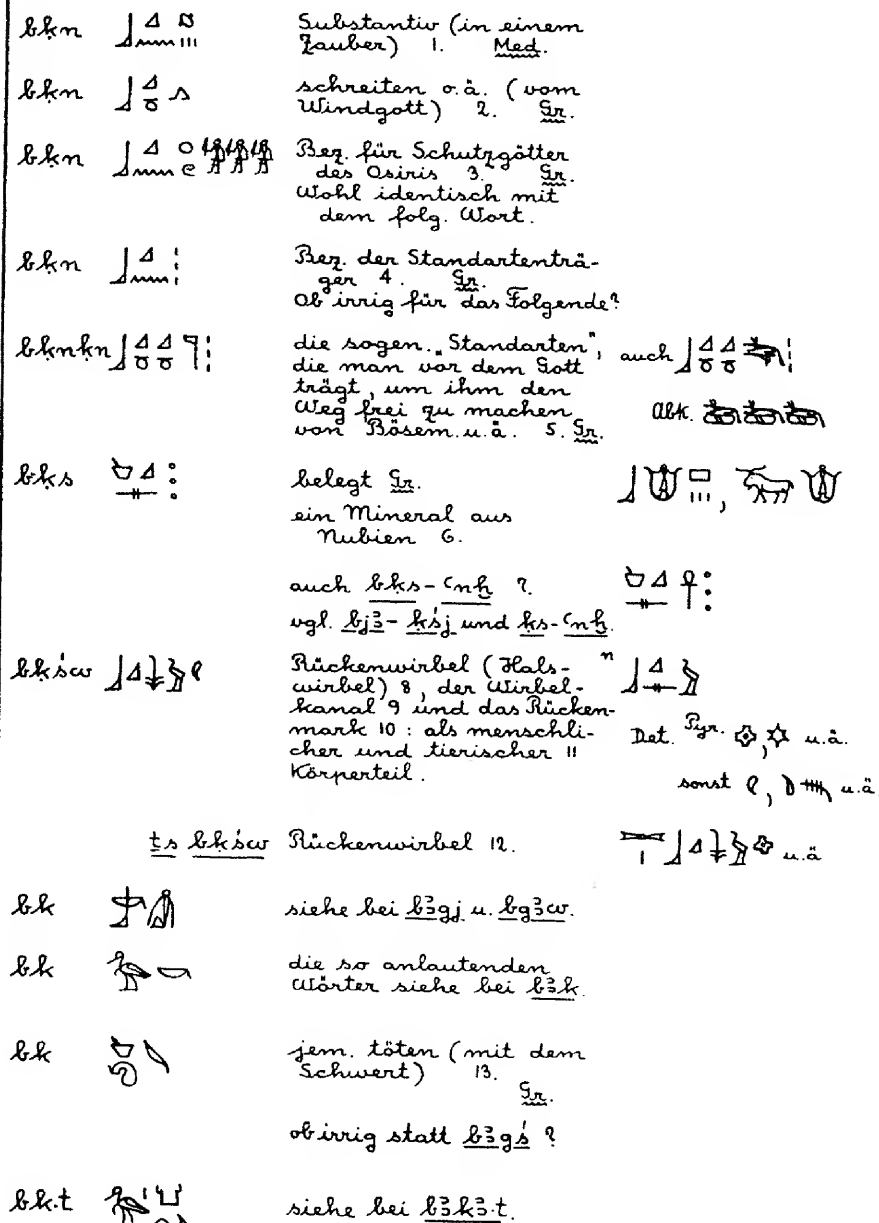 bḳn Substantiv (in einem
Zauber) 1. Med.
bḳn schreiten o.ä. (vom
Windgott) 2. Gr.
bḳn Bez. für Schutzgötter
des Osiris 3. Gr.
Wohl identisch mit
dem folg. Wort.
bḳn Bez. der Standartenträ-
ger 4. Gr.
Ob irrig für das Folgende?
bḳnḳn die sogen. „Standarten", auch
die man vor dem Gott
trägt, um ihm den
Weg frei zu machen Abk.
von Bösem u.ä. 5. Gr.
bḳs belegt Gr.
ein Mineral aus
Nubien 6.
auch bḳs-ꜥnḫ 7.
vgl. bjꜣ-ḳśj und ḳs-ꜥnḫ.
bḳśw Rückenwirbel (Hals- n
wirbel) 8, der Wirbel-
kanal 9 und das Rücken-
mark 10 : als menschli- Det. Pyr. u.ä.
cher und tierischer 11
Körperteil. sonst u.ä
ṯs bḳśw Rückenwirbel 12. u.ä
bk siehe bei bꜣgj u. bgꜣw.
bk die so anlautenden
Wörter siehe bei bꜣk.
bk jem. töten (mit dem
Schwert) 13.
Gr.
ob irrig statt bꜣgś ?
bk.t siehe bei bꜣkꜣ.t.